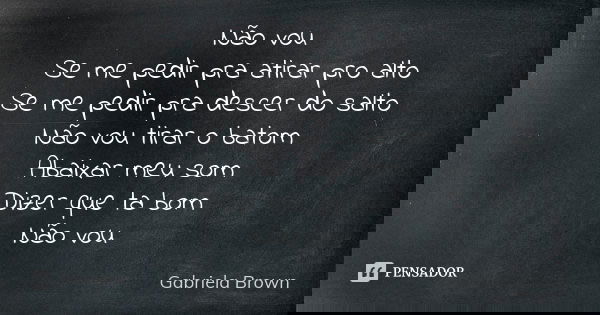 Não vou
Se me pedir pra atirar pro alto
Se me pedir pra descer do salto
Não vou tirar o batom
Abaixar meu som
Dizer que ta bom
Não vou
Gabriela Brown
PENSADOR